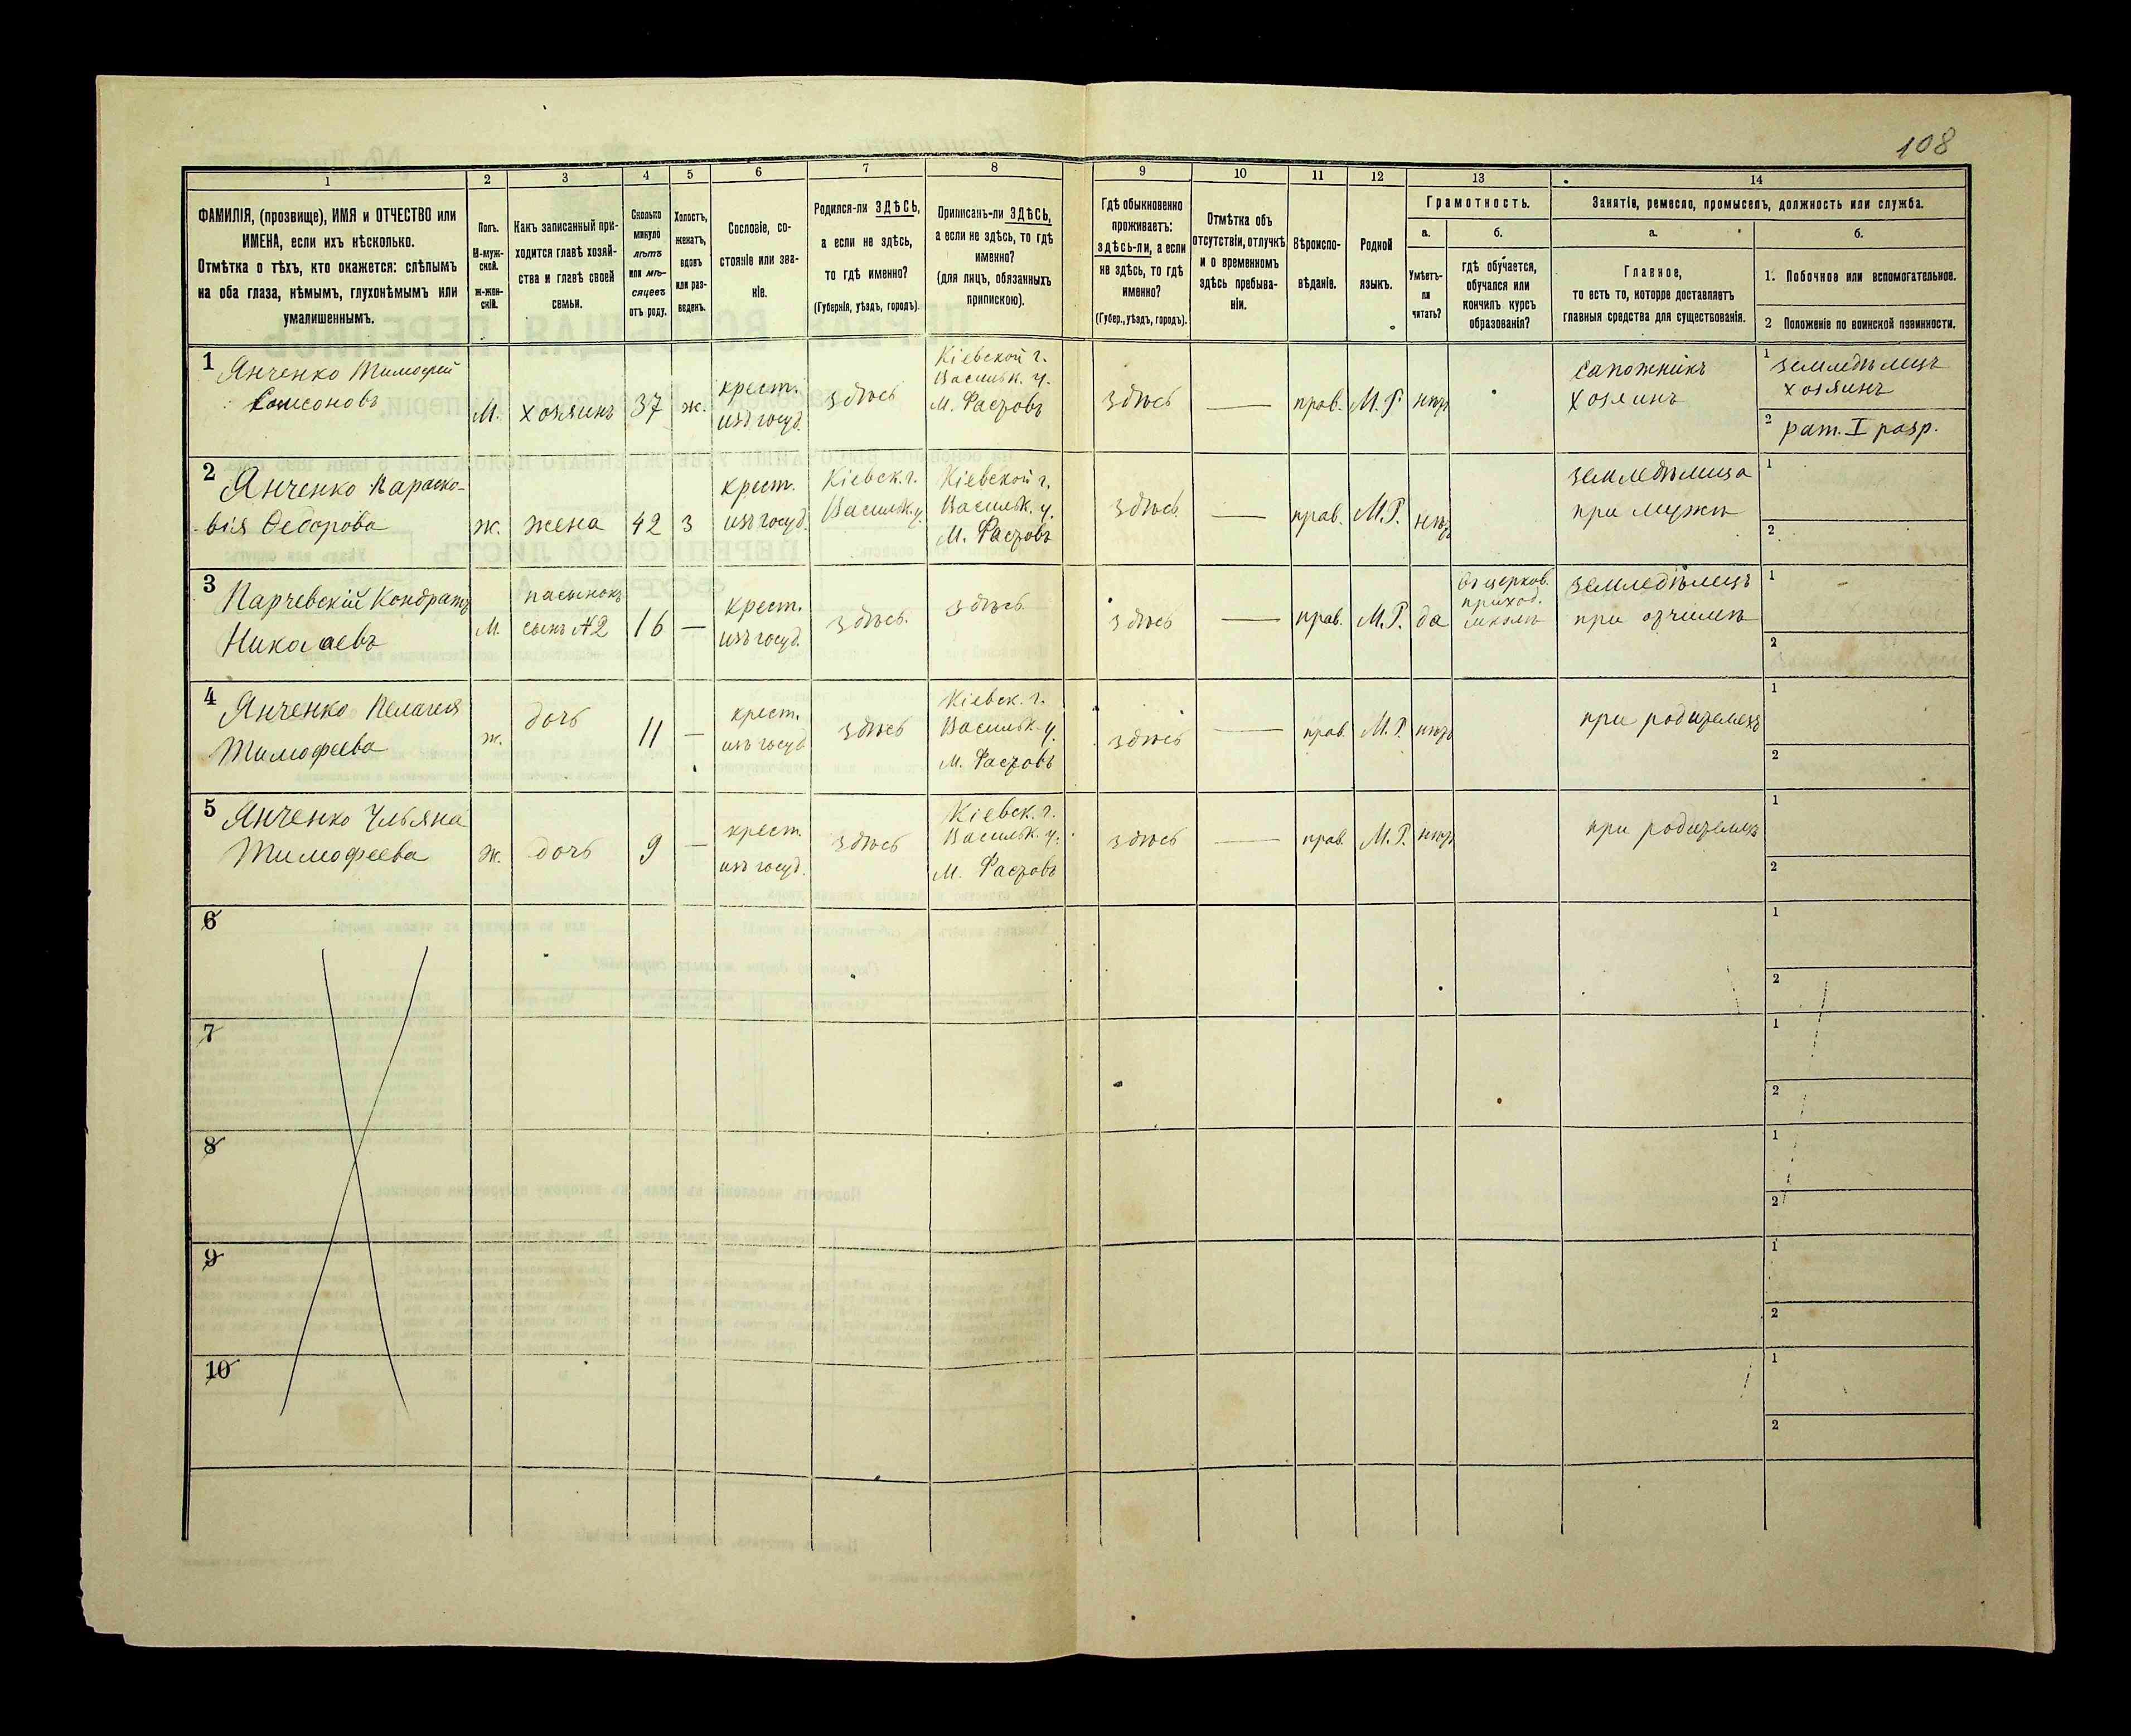 108
1 2 3 4 5 6 7 8 9 10 11 12 13 14
ФАМИЛІЯ, (прозвище), ИМЯ и ОТЧЕСТВО или
ИМЕНА, если ихъ нѣсколько.
Отмѣтка о тѣхъ, кто окажется: слѣпымъ
на оба глаза, нѣмымъ, глухонѣмымъ или
умалишеннымъ.
Полъ.
М-муж-
ской.
Ж-жен-
скій.
Какъ записанный при-
ходится главѣ хозяй-
ства и главѣ своей
семьи.
Сколько
минуло
лѣтъ
или мѣ-
сяцевъ
отъ роду.
Холостъ,
женатъ,
вдовъ
или раз-
веденъ.
Сословіе, со-
стояніе или зва-
ніе.
Родился-ли ЗДѢСЬ,
а если не здѣсь,
то гдѣ именно?
(Губернія, уѣздъ, городъ).
Приписанъ-ли ЗДѢСЬ,
а если не здѣсь, то гдѣ
именно?
(для лицъ, обязанныхъ
припискою).
Гдѣ обыкновенно
проживаетъ:
здѣсь-ли, а если
не здѣсь, то гдѣ
именно?
(Губер., уѣздъ, городъ).
Отмѣтка объ
отсутствіи, отлучкѣ
и о временномъ
здѣсь пребыва-
ніи.
Вѣроиспо-
вѣданіе.
Родной
языкъ.
Грамотность.
а.
Умѣетъ-
ли
читать?
б.
гдѣ обучается,
обучался или
кончилъ курсъ
образованія?
Занятіе, ремесло, промыселъ, должность или служба.
а.
Главное,
то есть то, которое доставляетъ
главныя средства для существованія.
б.
1. Побочное или вспомогательное.
2 Положеніе по воинской повинности.
1
Янченко Тимофей
Самсоновъ
М.
хозяинъ
37
ж.
крест.
изъ госуд.
здѣсь
Кіевской г.
Васильк. у.
М. Фастовъ
здѣсь
—
прав.
М. Р.
нѣтъ
сапожникъ
хозяинъ
1
земледѣлецъ
хозяинъ
2
рат. I разр.
2
Янченко Параско-
вія Ѳедорова
ж.
жена
42
з
крест.
изъ госуд.
Кіевск. г.
Васильк. у.
Кіевской г.
Васильк. у.
М. Фастовъ
здѣсь
—
прав.
М. Р.
нѣтъ
земледѣлица
при мужѣ
1
2
3
Парчевскій Кондратъ
Николаевъ
М.
пасынокъ
сынъ №2
16
—
крест.
изъ госуд.
здѣсь.
здѣсь.
здѣсь
—
прав.
М. Р.
да
въ церков.
приход.
школѣ
земледѣлецъ
при отчимѣ
1
2
4
Янченко Пелагея
Тимофеева
ж.
дочь
11
—
крест.
изъ госуд.
здѣсь
Кіевск. г.
Васильк. у.
М. Фастовъ
здѣсь
—
прав.
М. Р.
нѣтъ
при родителяхъ
1
2
5
Янченко Ульяна
Тимофеева
ж.
дочь
9
—
крест.
изъ госуд.
здѣсь
Кіевск. г.
Васильк. у.
М. Фастовъ
здѣсь
—
прав.
М. Р.
нѣтъ
при родителяхъ
1
2
6
1
2
7
1
2
8
1
2
9
1
2
10
1
2